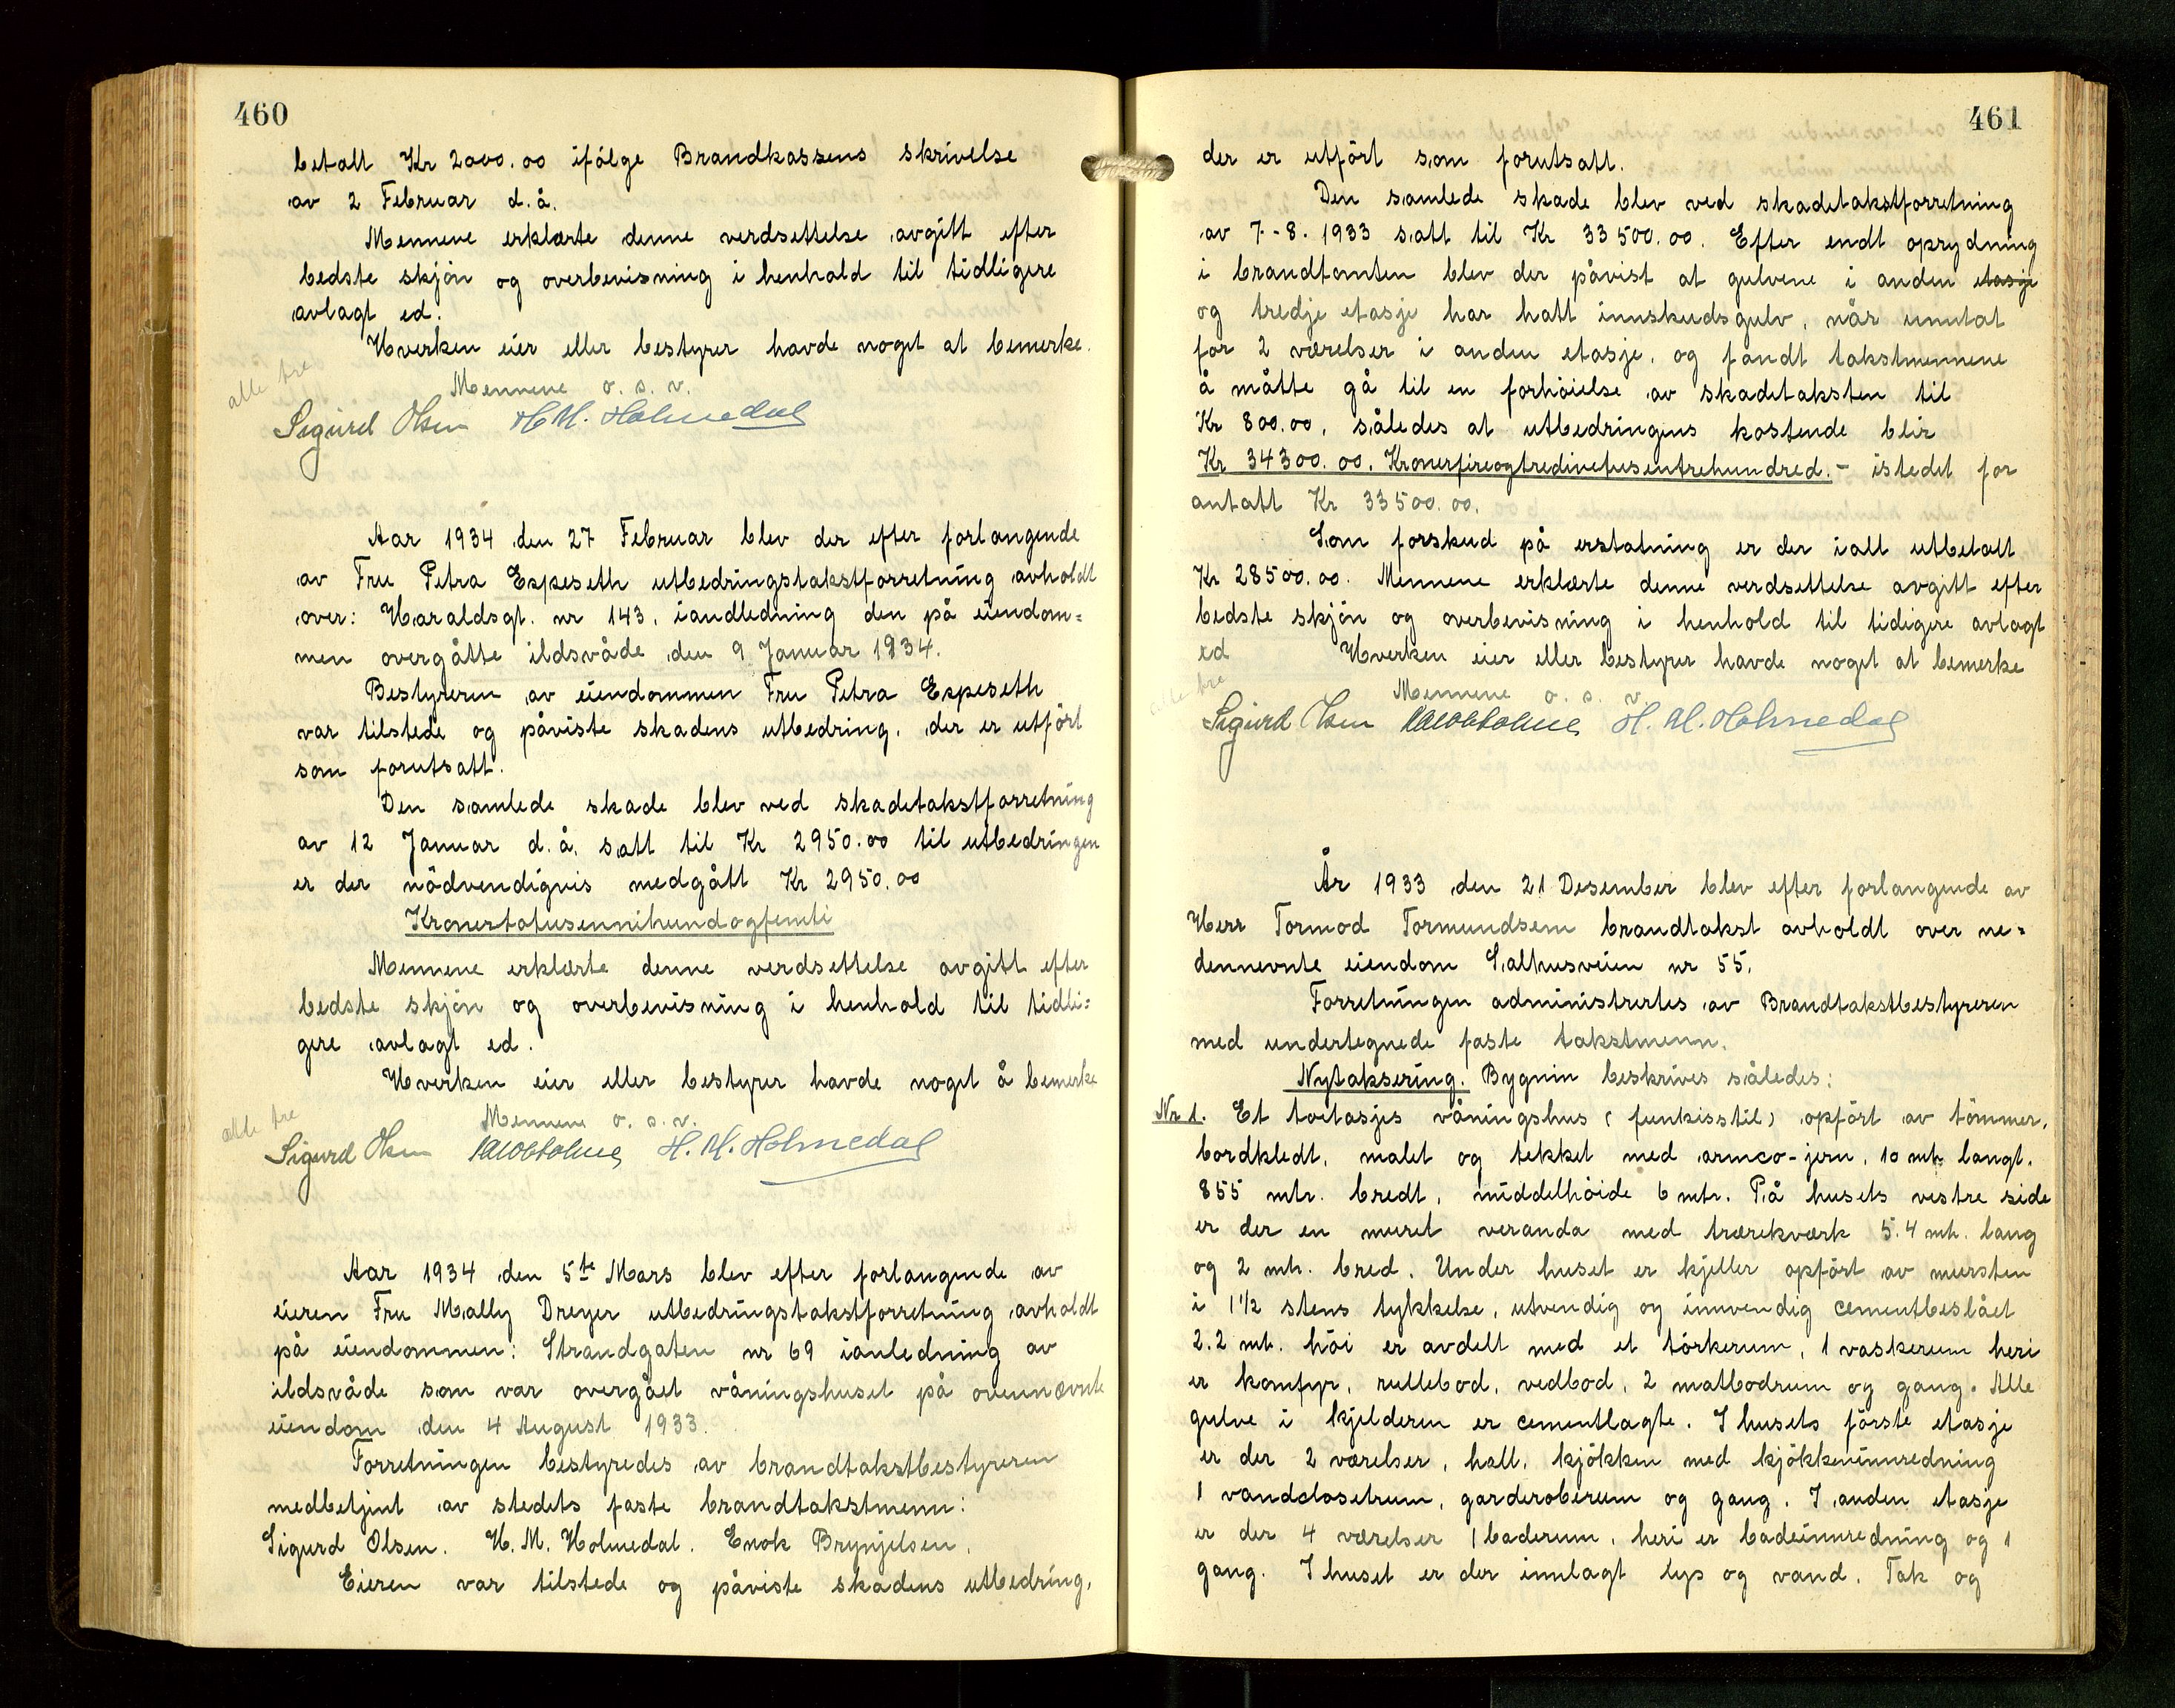 460
betalt Kr 2000.00 ifölge Brandkassens skrivelse
av 2 Februar d.å.
Mennene erklærte denne verdsettelse avgitt efter
bedste skjön og overbevisning i henhold til tidligere
avlagt ed.
Hverken eier eller bestyrer havde noget at bemerke.
alle tre
Mennene o. s. v.
Sigurd Olsen H. M. Holmedal
Aar 1934 den 27 Februar blev der efter forlangende
av Fru Petra Espeseth utbedringstakstforretning avholdt
over: Haraldsgt. nr 143, iandledning den på eiendom=
men overgåtte ildsvåde den 9 Januar 1934.
Bestyreren av eiendommen Fru Petra Espeseth
var tilstede og påviste skadens utbedring, der er utfört
som forutsatt.
Den samlede skade blev ved skadetakstforretning
av 12 Januar d.å. satt til Kr 2950.00 til utbedringen
er der nödvendigvis medgått Kr 2950.00
Kronertotusennihundogfemti
Mennene erklærte denne verdsettelse avgitt efter
bedste skjön og overbevisning i henhold til tidli=
gere avlagt ed.
Hverken eier eller bestyrer havde noget å bemerke
alle tre
Mennene o. s. v.
Sigurd Olsen H. M. Holmedal
Aar 1934 den 5te Mars blev efter forlangende av
eieren Fru Mally Dreyer utbedringstakstforretning avholdt
på eiendommen: Strandgaten nr 69 ianledning av
ildsvåde som var overgået våningshuset på ovennævnte
eiendom den 4 August 1933.
Forretningen bestyredes av brandtakstbestyreren
medbetjent av stedets faste brandtakstmenn:
Sigurd Olsen. H. M. Holmedal. Enok Brynjelsen.
Eieren var tilstede og påviste skadens utbedring,
461
der er utfört som forutsatt.
Den samlede skade blev ved skadetakstforretning
av 7-8. 1933 satt til Kr 33500.00. Efter endt oprydning
i brandtomten blev der påvist at gulvene i anden etasje
og tredje etasje har hatt innskudsgulv, når unntat
for 2 værelser i anden etasje, og fandt takstmennene
å måtte gå til en forhöielse av skadetaksten til
Kr 800.00, således at utbedringens kostende blir
Kr 34300.00. Kronerfireogtredivetusentrehundred.- istedet for
antatt Kr 33500.00.
Som forskud på erstatning er der ialt utbetalt
Kr 28500.00. Mennene erklærte denne verdsettelse avgitt efter
bedste skjön og overbevisning i henhold til tidigere avlagt
ed Hverken eier eller bestyrer havde noget at bemerke
alle tre
Mennene o. s. v
Sigurd Olsen H. M. Holmedal
År 1933 den 21 Desember blev efter forlangende av
Herr Tormod Tormundsem brandtakst avholdt over ne=
dennevnte eiendom Salhusveien nr 55.
Forretningen administrertes av Brandtakstbestyreren
med undertegnede faste takstmenn.
Nytaksering. Bygnin beskrives således:
Nr 1. Et toetasjes våningshus (funkisstil) opfört av tömmer,
bordkledt, malet og tekket med armco-jern, 10 mtr langt.
855 mtr. bredt, middelhöide 6 mtr. På husets vestre side
er der en muret veranda med trærekværk 5.4 mtr. lang
og 2 mtr. bred. Under huset er kjeller opfört av mursten
i 1½ stens tykkelse, utvendig og innvendig cementbeslået
2.2 mtr. höi er avdelt med et törkerum, 1 vaskerum heri
er komfyr, rullebod, vedbod, 2 matbodrum og gang. Alle
gulve i kjelderen er cementlagte. I husets förste etasje
er der 2 værelser, hall, kjökken med kjökkeninnredning
1 vandclosetrum, garderoberum og gang. I anden etasje
er der 4 værelser 1 baderum, heri er badeinnredning og 1
gang. I huset er der innlagt lys og vand. Tak og